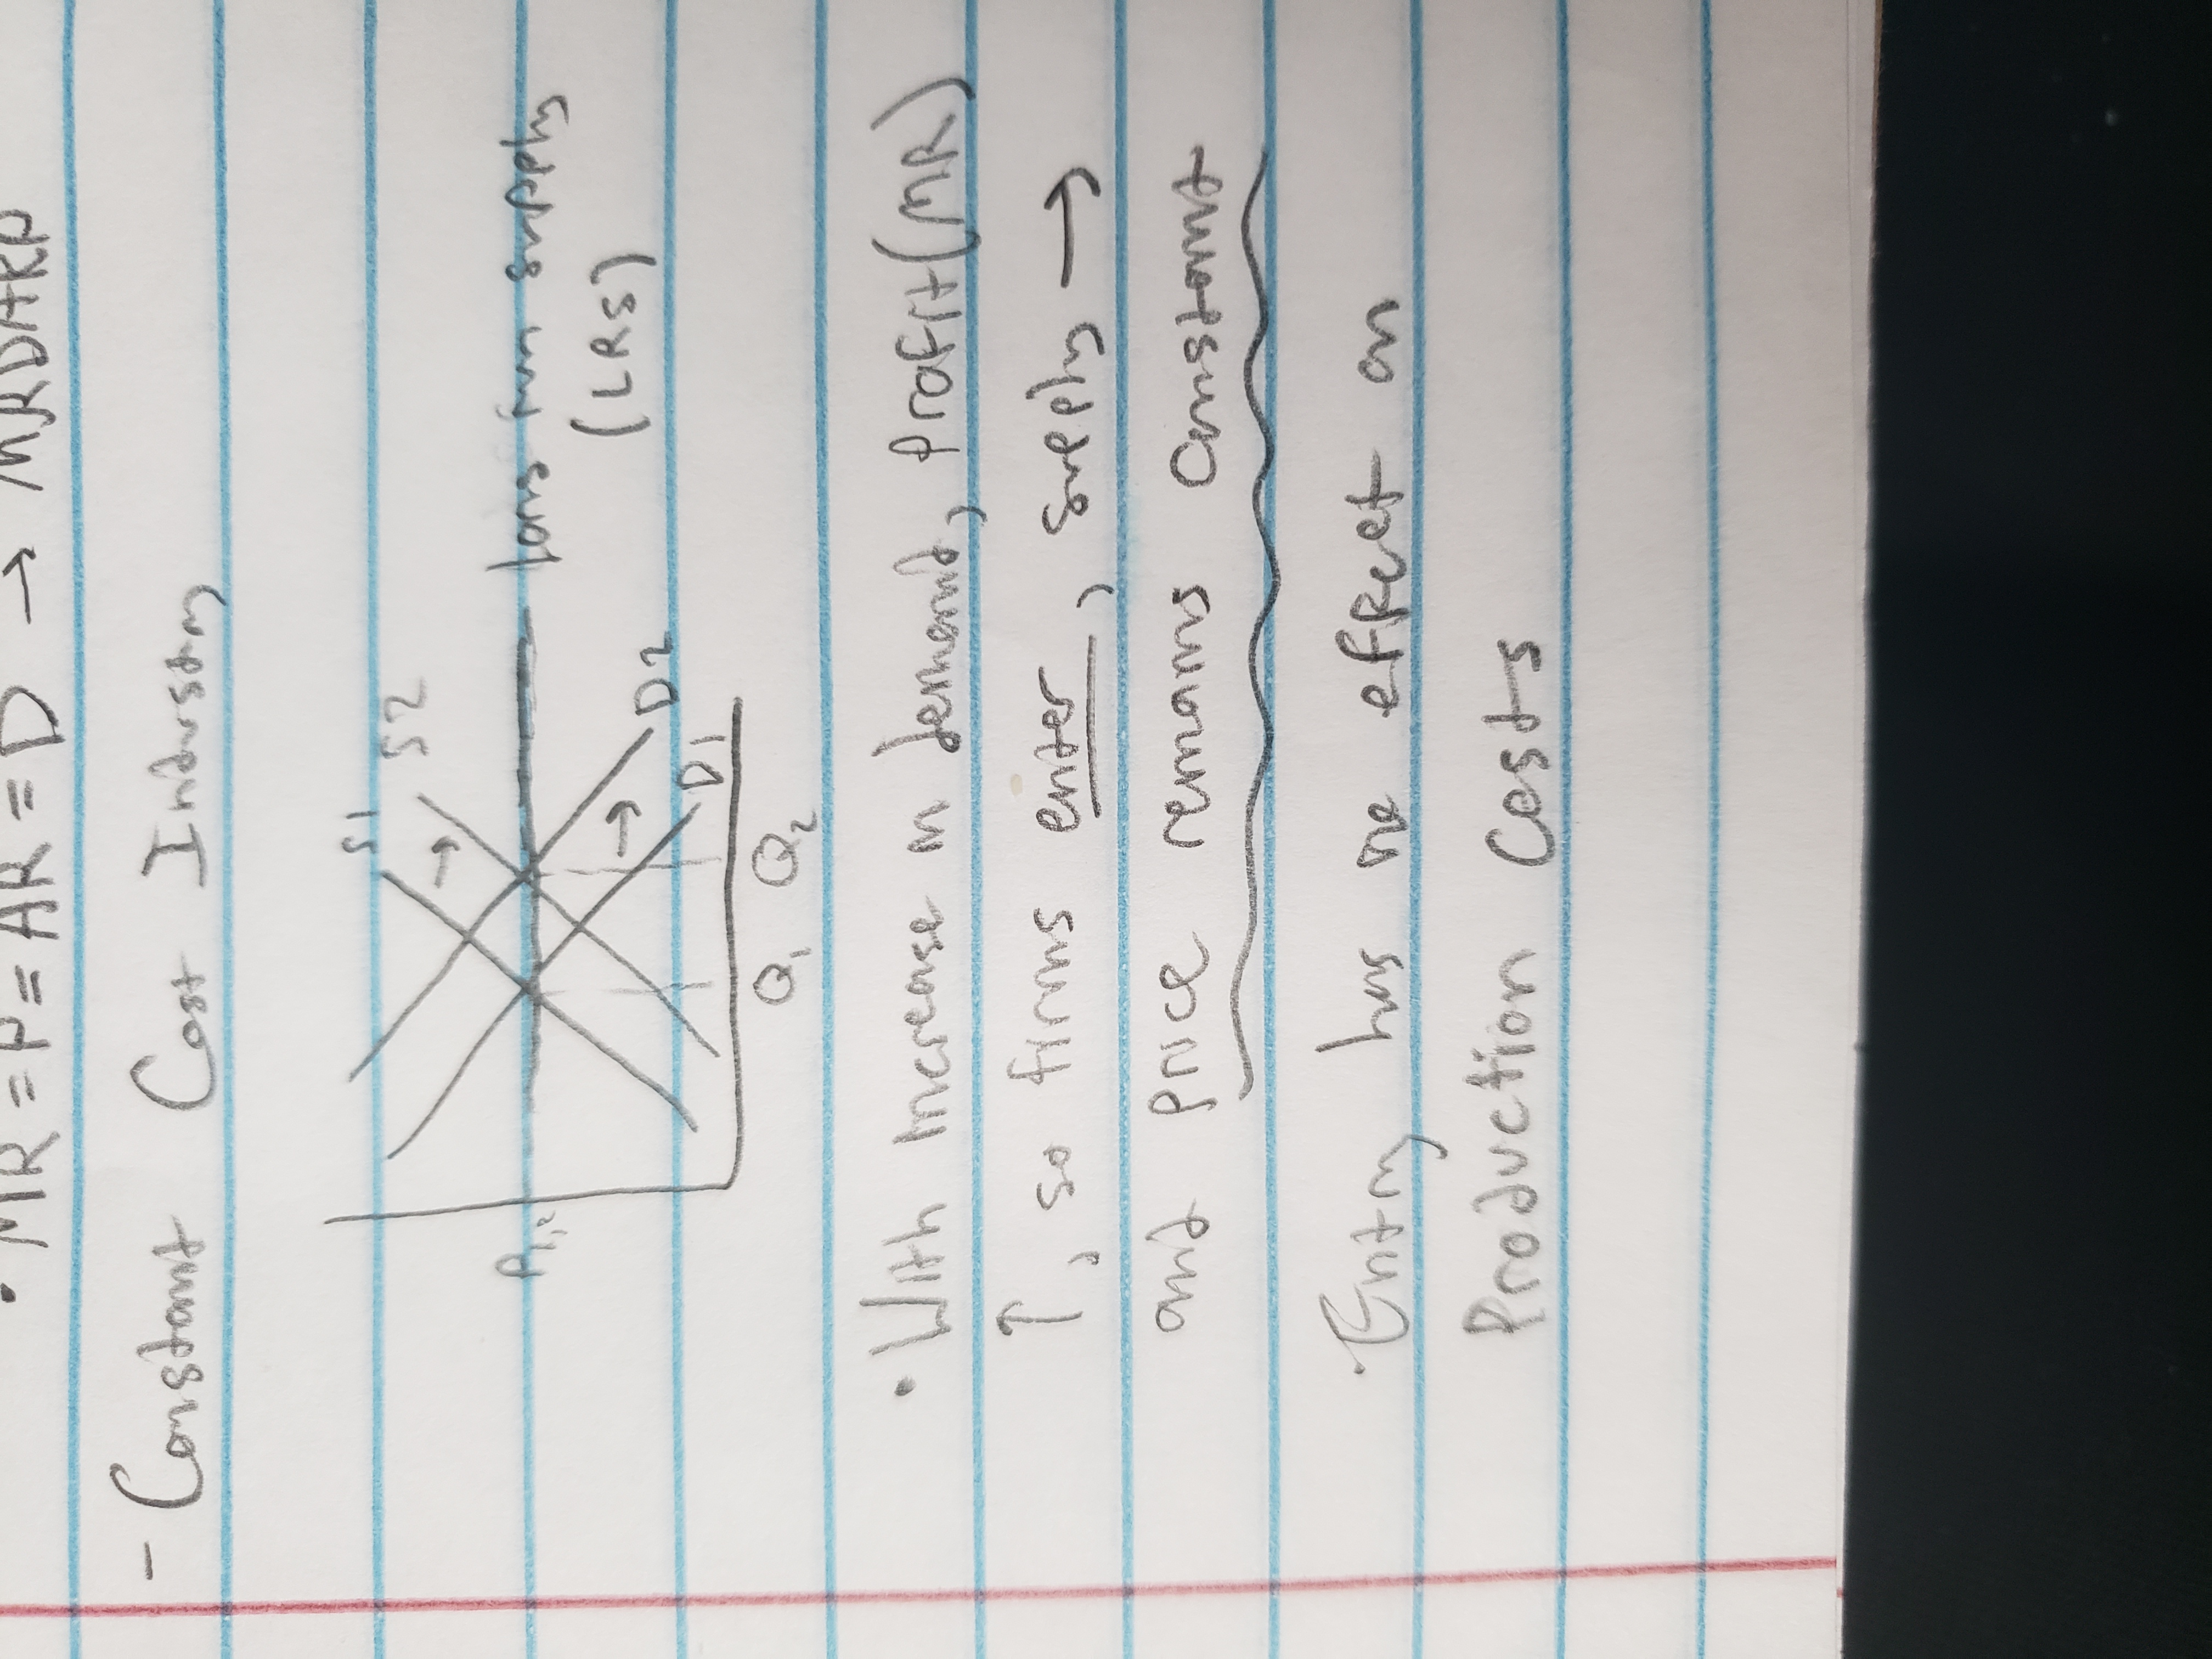 • MR = P = AR = D → MRDARP
- Constant Cost Industry
S1
S2
P1,2
long run supply
(LRS)
D2
D1
Q1 Q2
• With increase in demand, profit (MR)
↑, so firms enter, supply →
and price remains constant
• Entry has no effect on
Production Costs